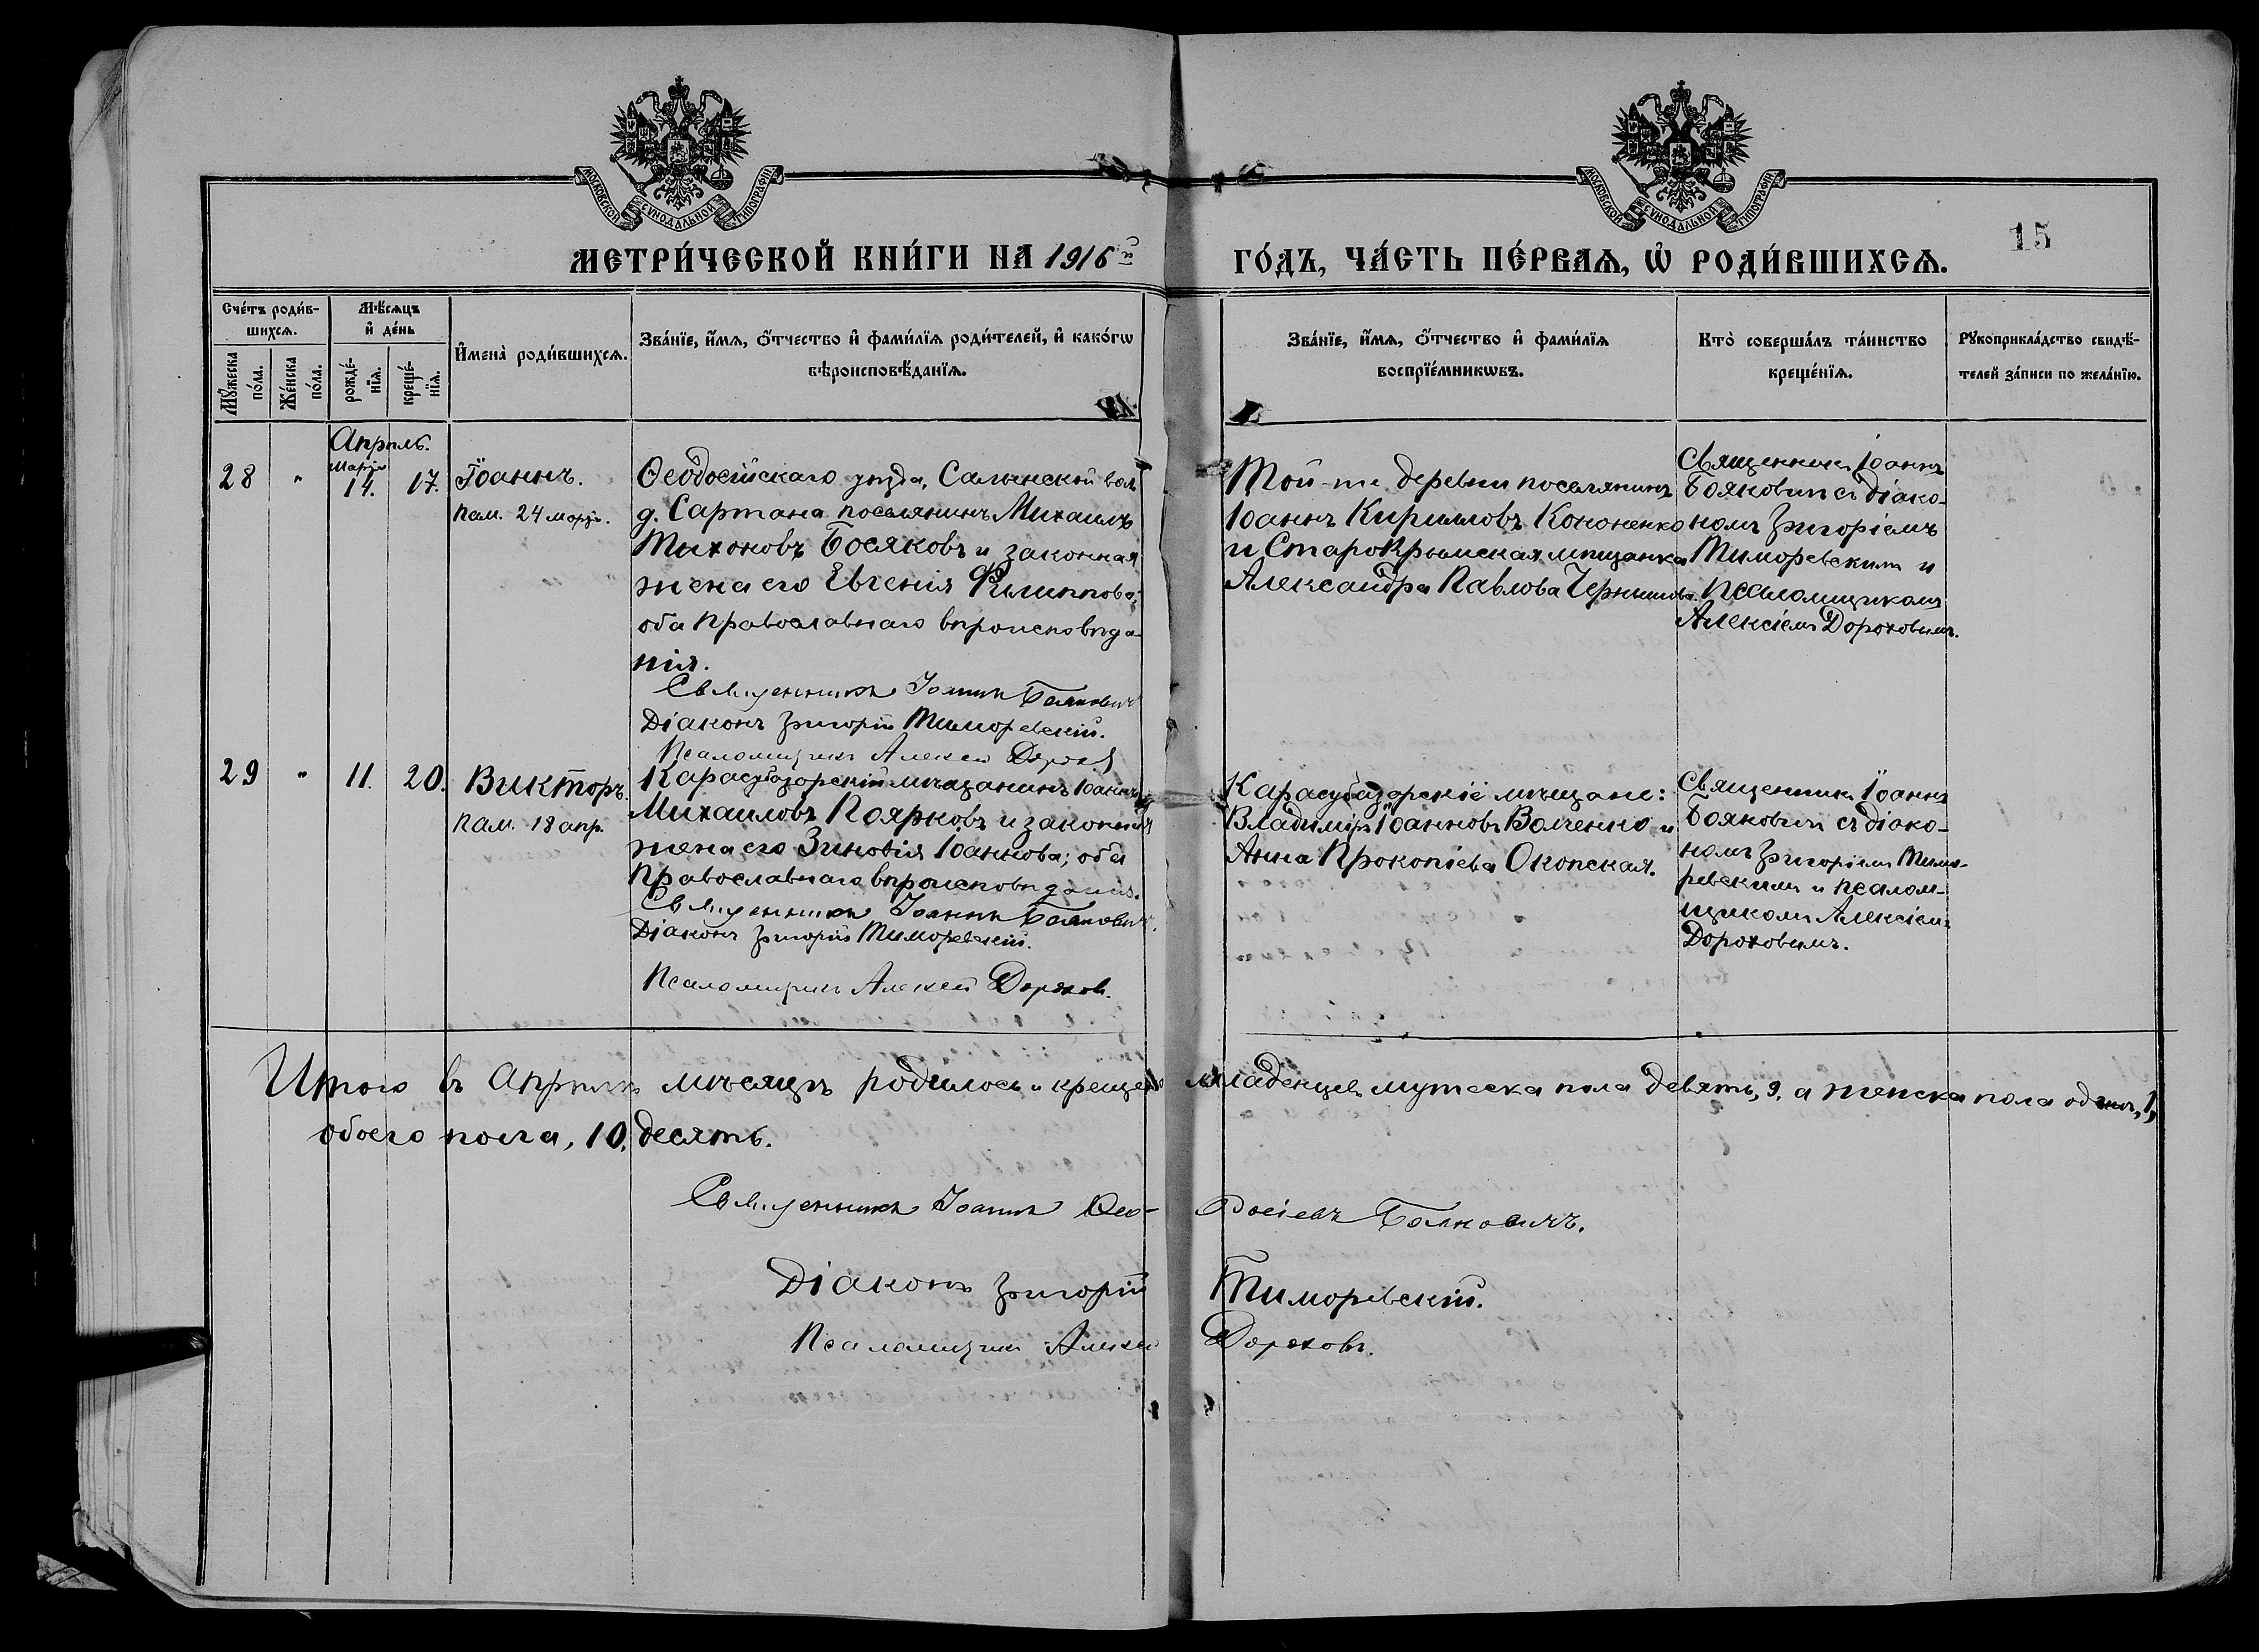 МОСКОВСКОЙ СѴНОДАЛЬНОЙ ТИПОГРАФІИ
МОСКОВСКОЙ СѴНОДАЛЬНОЙ ТИПОГРАФІИ
15
МЕТРИ́ЧЕСКОЙ КНИ́ГИ НА 1916й
ГО́ДЪ, ЧА́СТЬ ПЕ́РВАѦ, Ѡ҆ РОДИ́ВШИХСѦ.
Сче́тъ роди́в-
шихсѧ.
Мꙋ́жеска по́ла.
Же́нска по́ла.
Мѣ́сѧцъ
и҆ де́нь
рожде́-
нїѧ.
креще́-
нїѧ.
И҆мена̀ роди́вшихсѧ.
Зва́нїе, и҆́мѧ, ѻ҆́тчество и҆ фами́лїѧ роди́телей, и҆ како́гѡ
вѣроисповѣ́данїѧ.
Зва́нїе, и҆́мѧ, ѻ҆́тчество и҆ фами́лїѧ
воспрїе́мникѡвъ.
Кто̀ соверша́лъ та́инство
креще́нїѧ.
Рꙋкоприкла́дство свидѣ́-
телей за́писи по жела́нїю.
Апрѣль.
28 " Марта 14. 17. Іоаннъ.
пам. 24 марта.
Ѳеодосійскаго уѣзда, Салынской вол.
д. Сартана поселянинъ Михаилъ
Тихоновъ Босяковъ и законная
жена его Евгенія Филиппова;
оба православнаго вѣроисповѣда-
нія.
Священникъ Іоаннъ Баянович
Діаконъ Григорій Тиморевскій.
Псаломщикъ Алексей Дорохов
Той-же деревни поселянинъ
Іоаннъ Кирилловъ Кононенко
и СтароКрымская мѣщанка
Александра Павлова Чернышова.
Священникъ Іоаннъ
Бояновичъ съ діако-
номъ Григоріемъ
Тиморевскимъ и
псаломщикомъ
Алексіемъ Дороховымъ.
29 " 11. 20. Викторъ.
пам. 18 апр.
Карасубазарскій мѣщанинъ Іоаннъ
Михаиловъ Поярковъ и законная
жена его Зиновія Іоаннова; оба
православнаго вѣроисповѣданія.
Священникъ Іоаннъ Баянович.
Діаконъ Григорій Тиморевскій.
Псаломщикъ Алексей Дорохов.
Карасубазарскіе мѣщане:
Владиміръ Іоанновъ Волченко и
Анна Прокопіева Окопская.
Священникъ Іоаннъ
Бояновичъ съ діако-
номъ Григоріемъ Тимо-
ревскимъ и псалом-
щикомъ Алексіемъ
Дороховымъ.
Итого въ Апрѣлѣ мѣсяцѣ родилось и крещено младенцев мужеска пола девять, 9, а женска пола одинъ, 1,
обоего пола, 10, десять.
Священникъ Іоаннъ Ѳео-досіевъ Баяновичъ.
Діаконъ Григорій Тиморевскій.
Псаломщикъ Алексей Дороховъ.